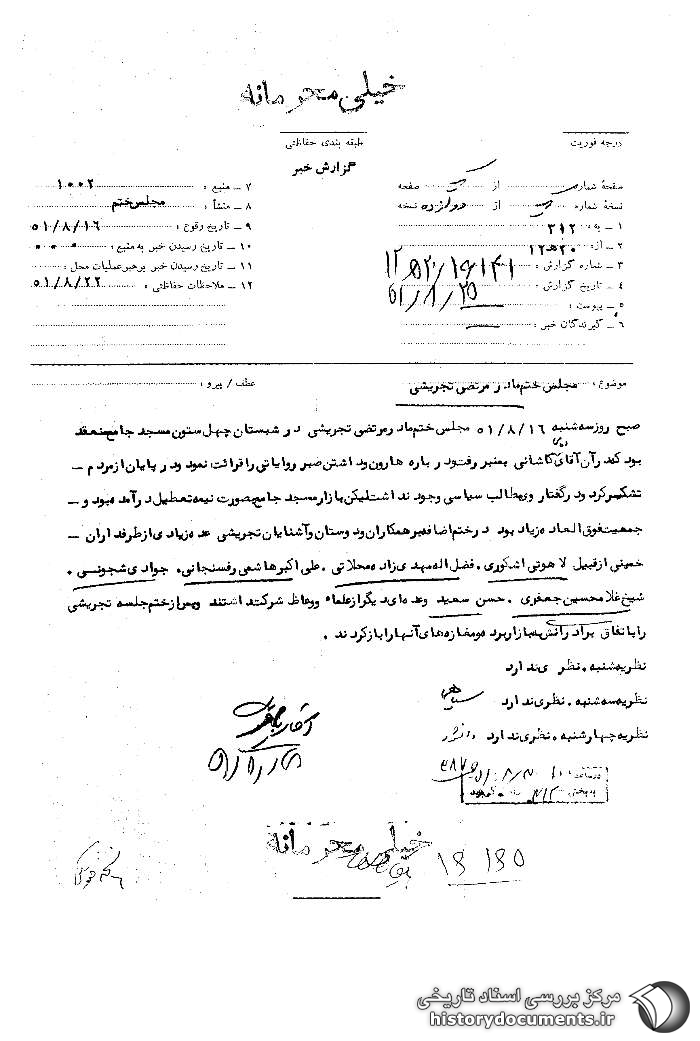 خیلی محرمانه
درجه فوریت
طبقه بندی حفاظتی
گزارش خبر
صفحهٔ شماره یک از یک صفحه
نسخهٔ شماره از دوازده نسخه
۱ ـ به : ۳۱۲
۲ ـ از : ۲۰ ه ۱۲
۳ ـ شماره گزارش :
۴ ـ تاریخ گزارش : ۵۱/۸/۲۵
۵ ـ پیوست :
۶ ـ گیرندگان خبر :
۷ ـ منبع : ۱۰۰۲
۸ ـ منشأ : مجلس ختم
۹ ـ تاریخ وقوع : ۵۱/۸/۱۶
۱۰ ـ تاریخ رسیدن خبر به منبع :
۱۱ ـ تاریخ رسیدن خبر برهبر عملیات محل :
۱۲ ـ ملاحظات حفاظتی : ۵۱/۸/۲۲
موضوع : مجلس ختم مادر مرتضی تجریشی
عطف / پیرو :
صبح روز سه شنبه ۵۱/۸/۱۶ مجلس ختم مادر مرتضی تجریشی در شبستان چهل ستون مسجد جامع منعقد
بود که در آن آقای کاشانی بمنبر رفت و در باره هارون و داشتن صبر روایاتی را قرائت نمود و در پایان از مردم ـ
تشکر کرد و در گفتار وی مطالب سیاسی وجود نداشت لیکن بازار مسجد جامع بصورت نیمه تعطیل در آمده بود و ـ
جمعیت فوق العاده زیاد بود در ختم اضافه بر همکاران و دوستان و آشنایان تجریشی عده زیادی از طرفداران ـ
خمینی از قبیل لاهوتی اشکوری . فضل اله مهدی زاده محلاتی . علی اکبر هاشمی رفسنجانی . جوادی شجونی .
شیخ غلامحسین جعفری . حسن سعید وعده ای دیگر از علماء و وعاظ شرکت داشتند و پس از ختم جلسه تجریشی
را باتفاق برادرانش ببازار برده و مغازه های آنها را باز کردند .
نظریه شنبه . نظری ندارد
نظریه سه شنبه . نظری ندارد
نظریه چهارشنبه . نظری ندارد
خیلی محرمانه
مرکز بررسی اسناد تاریخی
historydocuments.ir